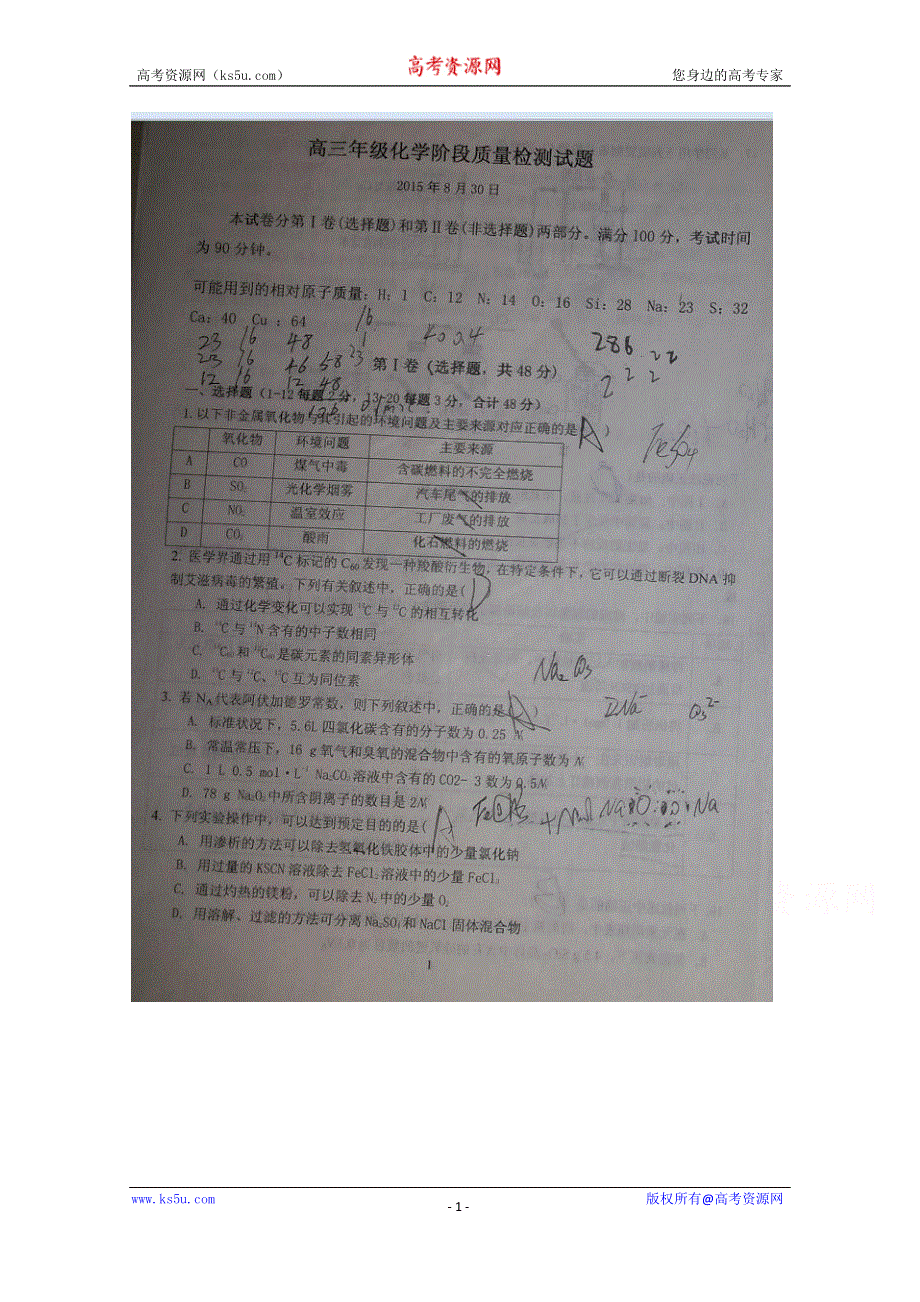 高考资源网（ks5u.com） 高考资源网 您身边的高考专家
高三年级化学阶段质量检测试题
2015年8月30日
本试卷分第Ⅰ卷(选择题)和第Ⅱ卷(非选择题)两部分。满分100分，考试时间
为90分钟。
可能用到的相对原子质量：H：1 C：12 N：14 O：16 Si：28 Na：23 S：32
Ca：40 Cu：64
16
23 16 48 1 4004 286 22
23 16 46 58 23 第Ⅰ卷（选择题，共48分）
12 16 12 48 2 2 2
一、选择题（1-12每题2分，13-20每题3分，合计48分）
1.以下非金属氧化物与其引起的环境问题及主要来源对应正确的是 A ）
氧化物 环境问题 主要来源
A CO 煤气中毒 含碳燃料的不完全燃烧
B SO₂ 光化学烟雾 汽车尾气的排放
C NO₂ 温室效应 工厂废气的排放
D CO₂ 酸雨 化石燃料的燃烧
FeSO4
2. 医学界通过用 ¹⁴C 标记的 C₆₀发现一种羧酸衍生物，在特定条件下，它可以通过断裂DNA 抑
制艾滋病毒的繁殖。下列有关叙述中，正确的是( D
A. 通过化学变化可以实现 ¹⁴C 与 ¹²C 的相互转化
B. ¹⁴C 与 ¹⁴N 含有的中子数相同
C. ¹⁴C₆₀ 和 ¹²C₆₀ 是碳元素的同素异形体
D. ¹⁴C 与 ¹³C、¹²C 互为同位素
Na₂O3
3. 若 N_A 代表阿伏加德罗常数，则下列叙述中，正确的是 A ) 2Na O₃²⁻
A. 标准状况下，5.6L 四氯化碳含有的分子数为 0.25 N
B. 常温常压下，16 g 氧气和臭氧的混合物中含有的氧原子数为 N
C. 1 L 0.5 mol·L⁻¹ Na₂CO₃ 溶液中含有的 CO2- 3 数为 0.5N
D. 78 g Na₂O₂ 中所含阴离子的数目是 2N
4. 下列实验操作中，可以达到预定目的的是( A )
A. 用渗析的方法可以除去氢氧化铁胶体中的少量氯化钠
B. 用过量的 KSCN 溶液除去 FeCl₂ 溶液中的少量 FeCl₃
C. 通过灼热的镁粉，可以除去 N₂ 中的少量 O₂
D. 用溶解、过滤的方法可分离 Na₂SO₄ 和 NaCl 固体混合物
1
www.ks5u.com - 1 - 版权所有@高考资源网